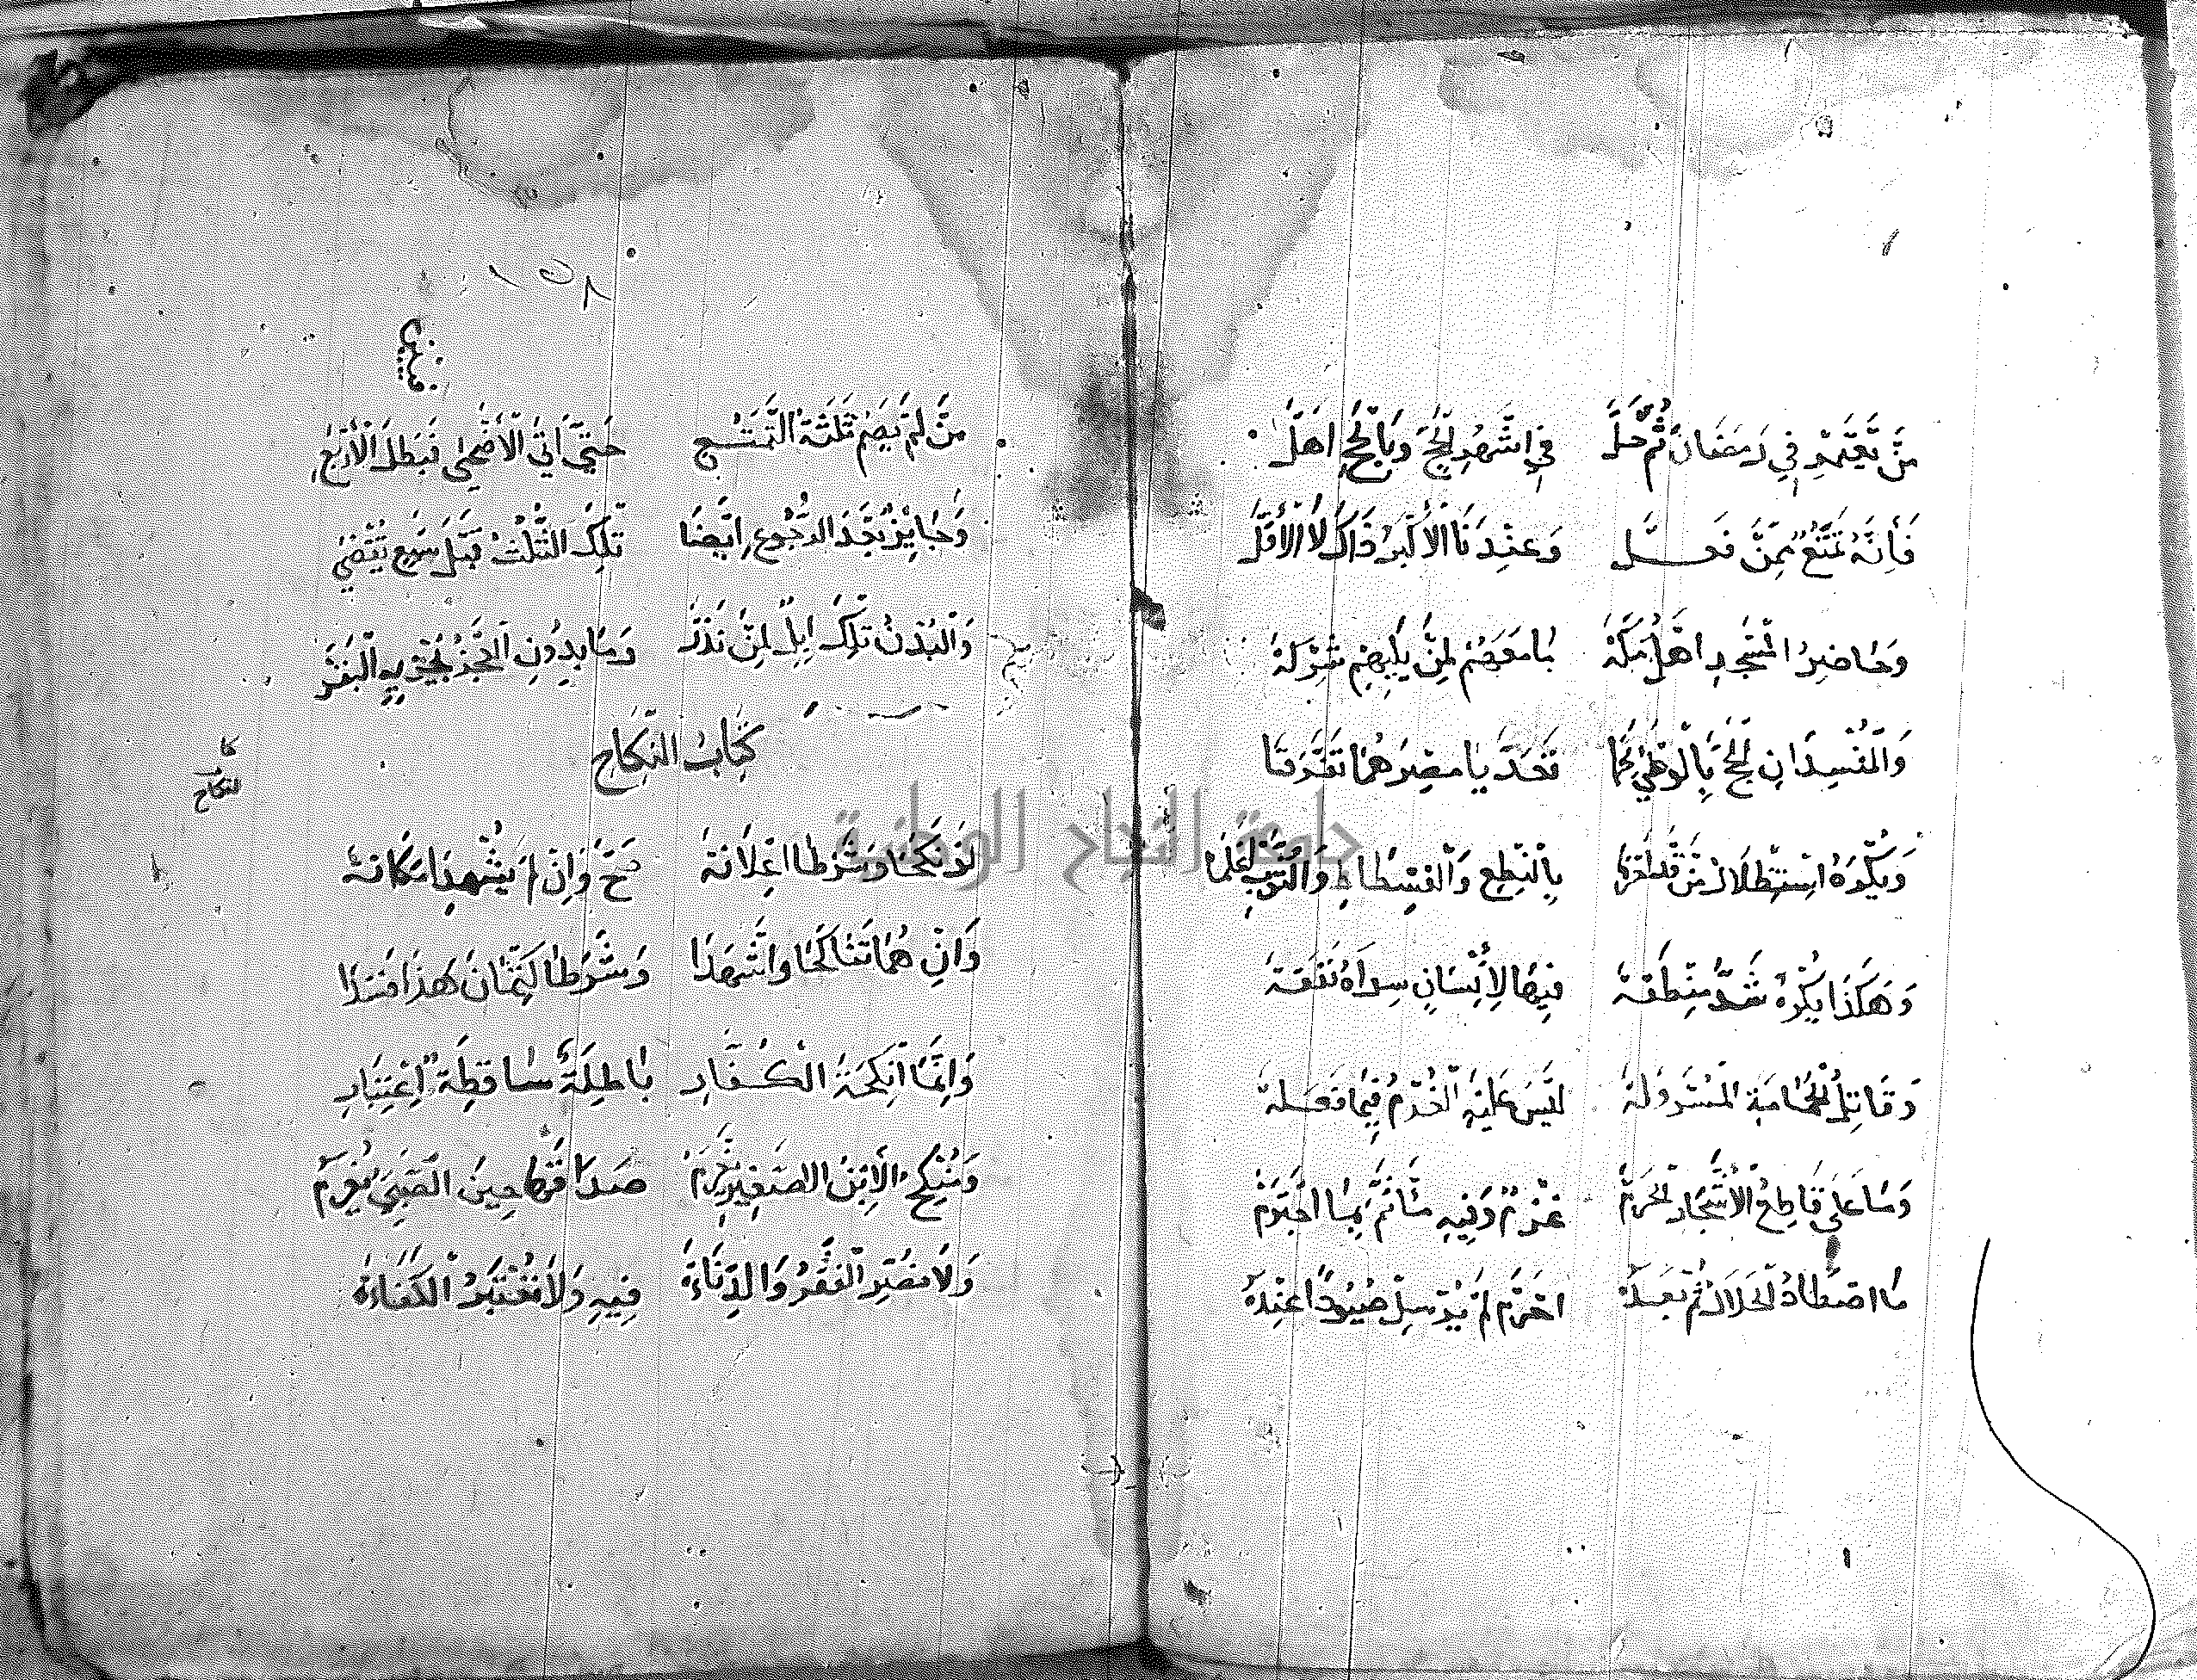 مَنْ يَعْتَمِرْ فِي رَمَضَانَ ثُمَّ حَلَّ فِي اشْهُرِ الْحَجِّ وَبِالْحَجِّ اهَلّ
فَاِنَّهُ تَمَتُّعٌ مِمَّنْ فَعَل وَعِنْدَنَا الْأَكْثَرُ ذَاكَ لَا الْأَقَلّ
وَحَاضِرُ الْمَسْجِدِ اهْلُ مَكَّهْ مَنْزِلَهْ
وَالْمُفْسِدَانِ الْحَجَّ بِالْوَطْيِ تَفَرَّقَا
وَيُكْرَهُ اسْتِظْلَالُ مَنْ بِالنِّطْعِ وَالْفُسْطَاطِ وَالثَّوْبِ
وَهَكَذَا يُكْرَهُ شَدُّ مِنْطَقَهْ فِيهَا لِإِنْسَانٍ سِوَاهُ نَفَقَهْ
وَقَاتِلُ الْقَيْسَ عَلَيْهِ الْغُرْمُ فِيمَا فَعَلَهْ
وَمَا عَلَى قَاطِعِ الْأَشْجَارِ الْحَرَمْ غُرْمٌ وَفِيهِ مَأْثَمٌ بِمَا اجْتَرَمْ
مَا اصْطَادَ الْحَلَالُ ثُمَّ بَعْدَهْ احْرَمَ لَمْ يُرْسِلْ صُيُودًا عِنْدَهْ
١٥٨
مَنْ لَمْ يَصُمْ ثَلَثَةَ التَّمَتُّعِ حَتَّى اتَى الْأَضْحَى فَبَطَلَ الْأَرْبَع
وَجَايِزٌ بَعْدَ الرُّجُوعِ ايْضَا تِلْكَ الثَّلَثُ قَبْلَ سَبْعٍ تُقْضَى
وَالْبُدْنُ تِلْكَ اِبِلٌ لِمَنْ نَذَرْ وَمَا بِدُونِ الْبَقَرْ
كِتَابُ النِّكَاحِ
كتاب
النكاح
لَوْ نَكَحَا وَشَرَطَا اعْلَانَهْ صَحَّ وَاِنْ لَمْ يُشْهِدَا مَكَانَهْ
وَاِنْ هُمَا تَنَاكَحَا وَاشْهَدَا وَشَرَطَا كِتْمَانَ هَذَا فَسَدَا
وَاِنَّمَا انْكِحَةُ الْكُفَّارِ بَاطِلَةٌ سَاقِطَةُ اعْتِبَارِ
وَمُنْكِحُ الْاِبْنِ الصَّغِيرِ صَدَاقَهَا حِينَ الصَّبِيُّ مُغْرَمْ
وَلَا الْفَقْرُ وَالدَّنَاءَهْ فِيهِ وَلَا تُعْتَبَرُ الْكَفَاءَهْ
جامعة النجاح الوطنية